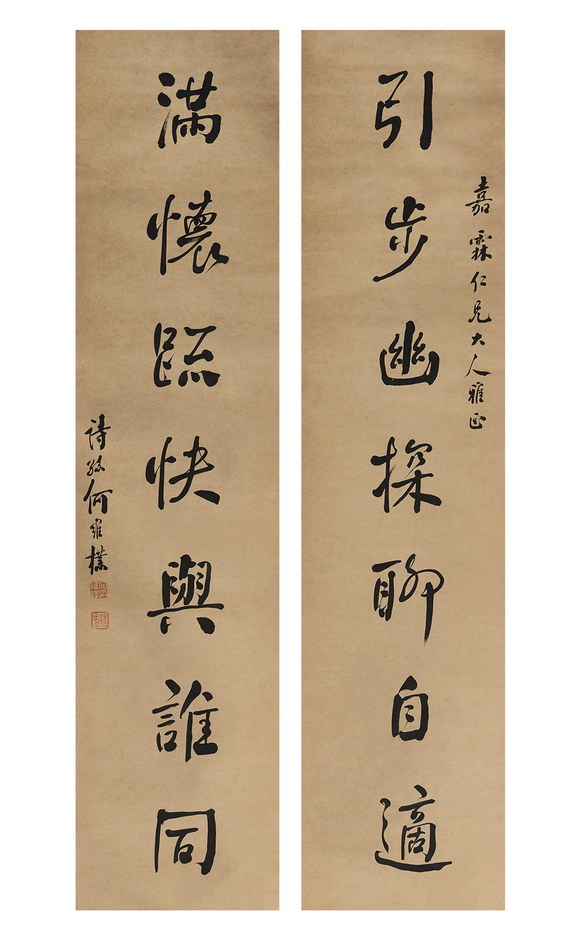 引步幽探聊自適
嘉霖仁兄大人雅正
滿懷疏快與誰同
詩孫何維樸